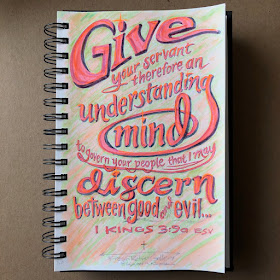 Give
your servant
therefore an
understanding
mind
to govern your people that I may
discern
between good and evil...
1 KINGS 3:9a ESV